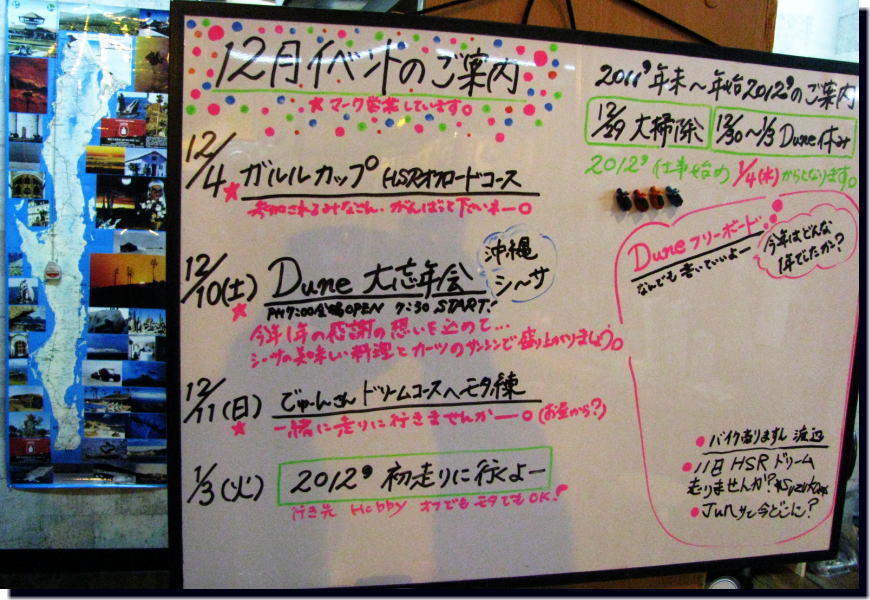 12月イベントのご案内
★マーク営業しています。
12/4 ★ ガルルカップ HSRオフロードコース
参加されるみなさん、がんばって下さいネー。
12/10(土) ★ Dune 大忘年会
沖縄
シ〜サ
PM7:00会場OPEN 7:30 START!
今年1年の感謝の想いを込めて...
シーサの美味しい料理とカーツのサンシンで盛り上がりましょう。
12/11(日) ★ でゅーんさん ドリームコースへモタ練
一緒に走りに行きませんかー。(お昼から?)
1/3(火) 2012' 初走りに行くよー
行き先 Hobby オフでもモタでもOK!
2011'年末〜年始2012'のご案内
12/29 大掃除
12/30〜1/3 Dune休み
2012' 仕事始め 1/4(水)からとなります。
Dune フリーボード
なんでも書いていいよー
今年はどんな
1年でしたか?
●バイクありますん 渡辺
●11日 HSR ドリーム
走りませんか?
●Junサン今どこに?